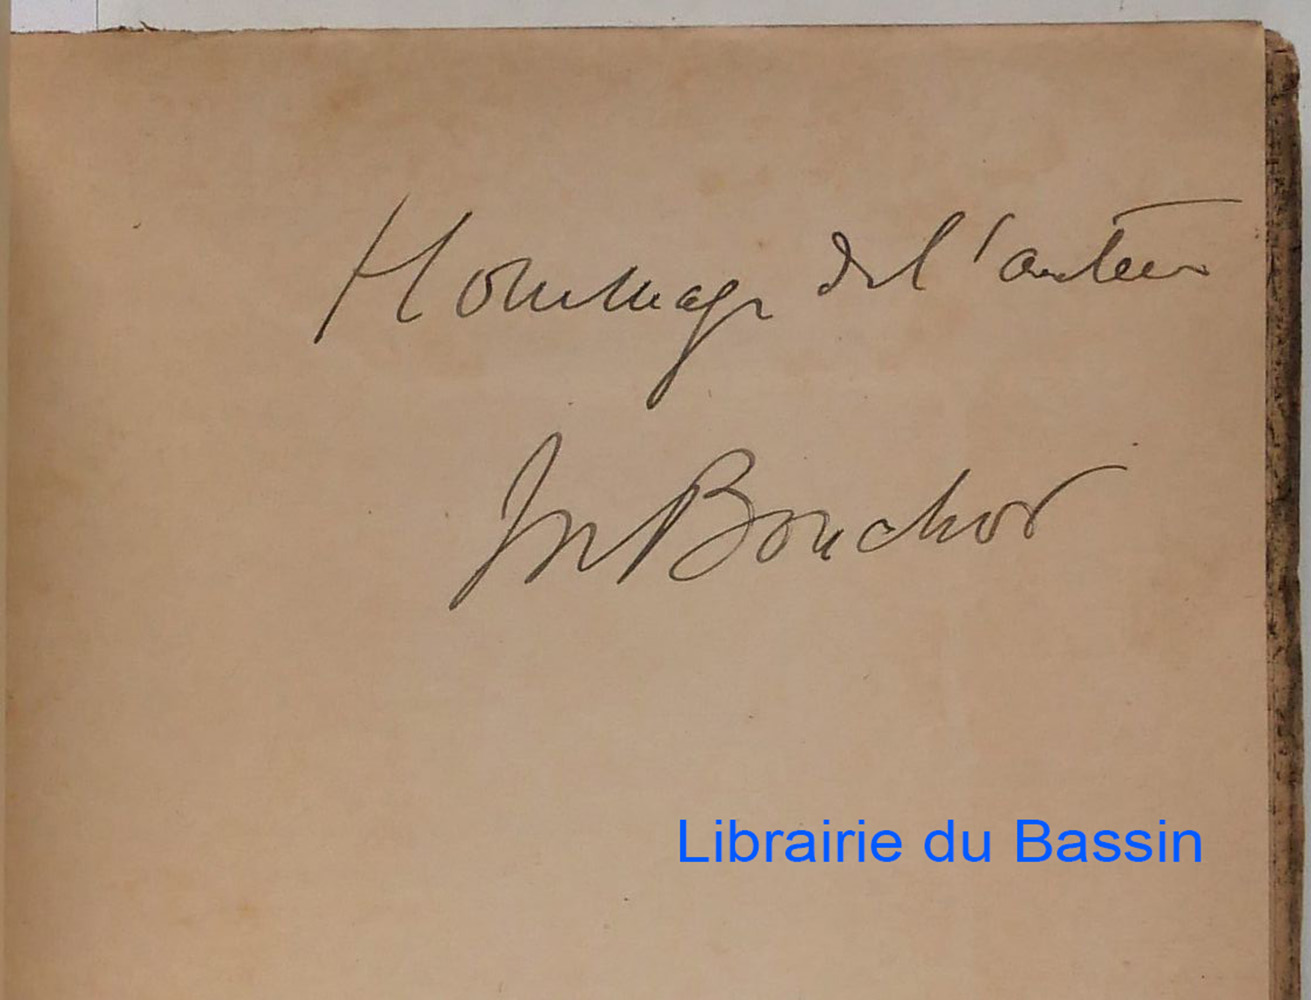 Hommage de l'auteur
M Bouchor
Librairie du Bassin